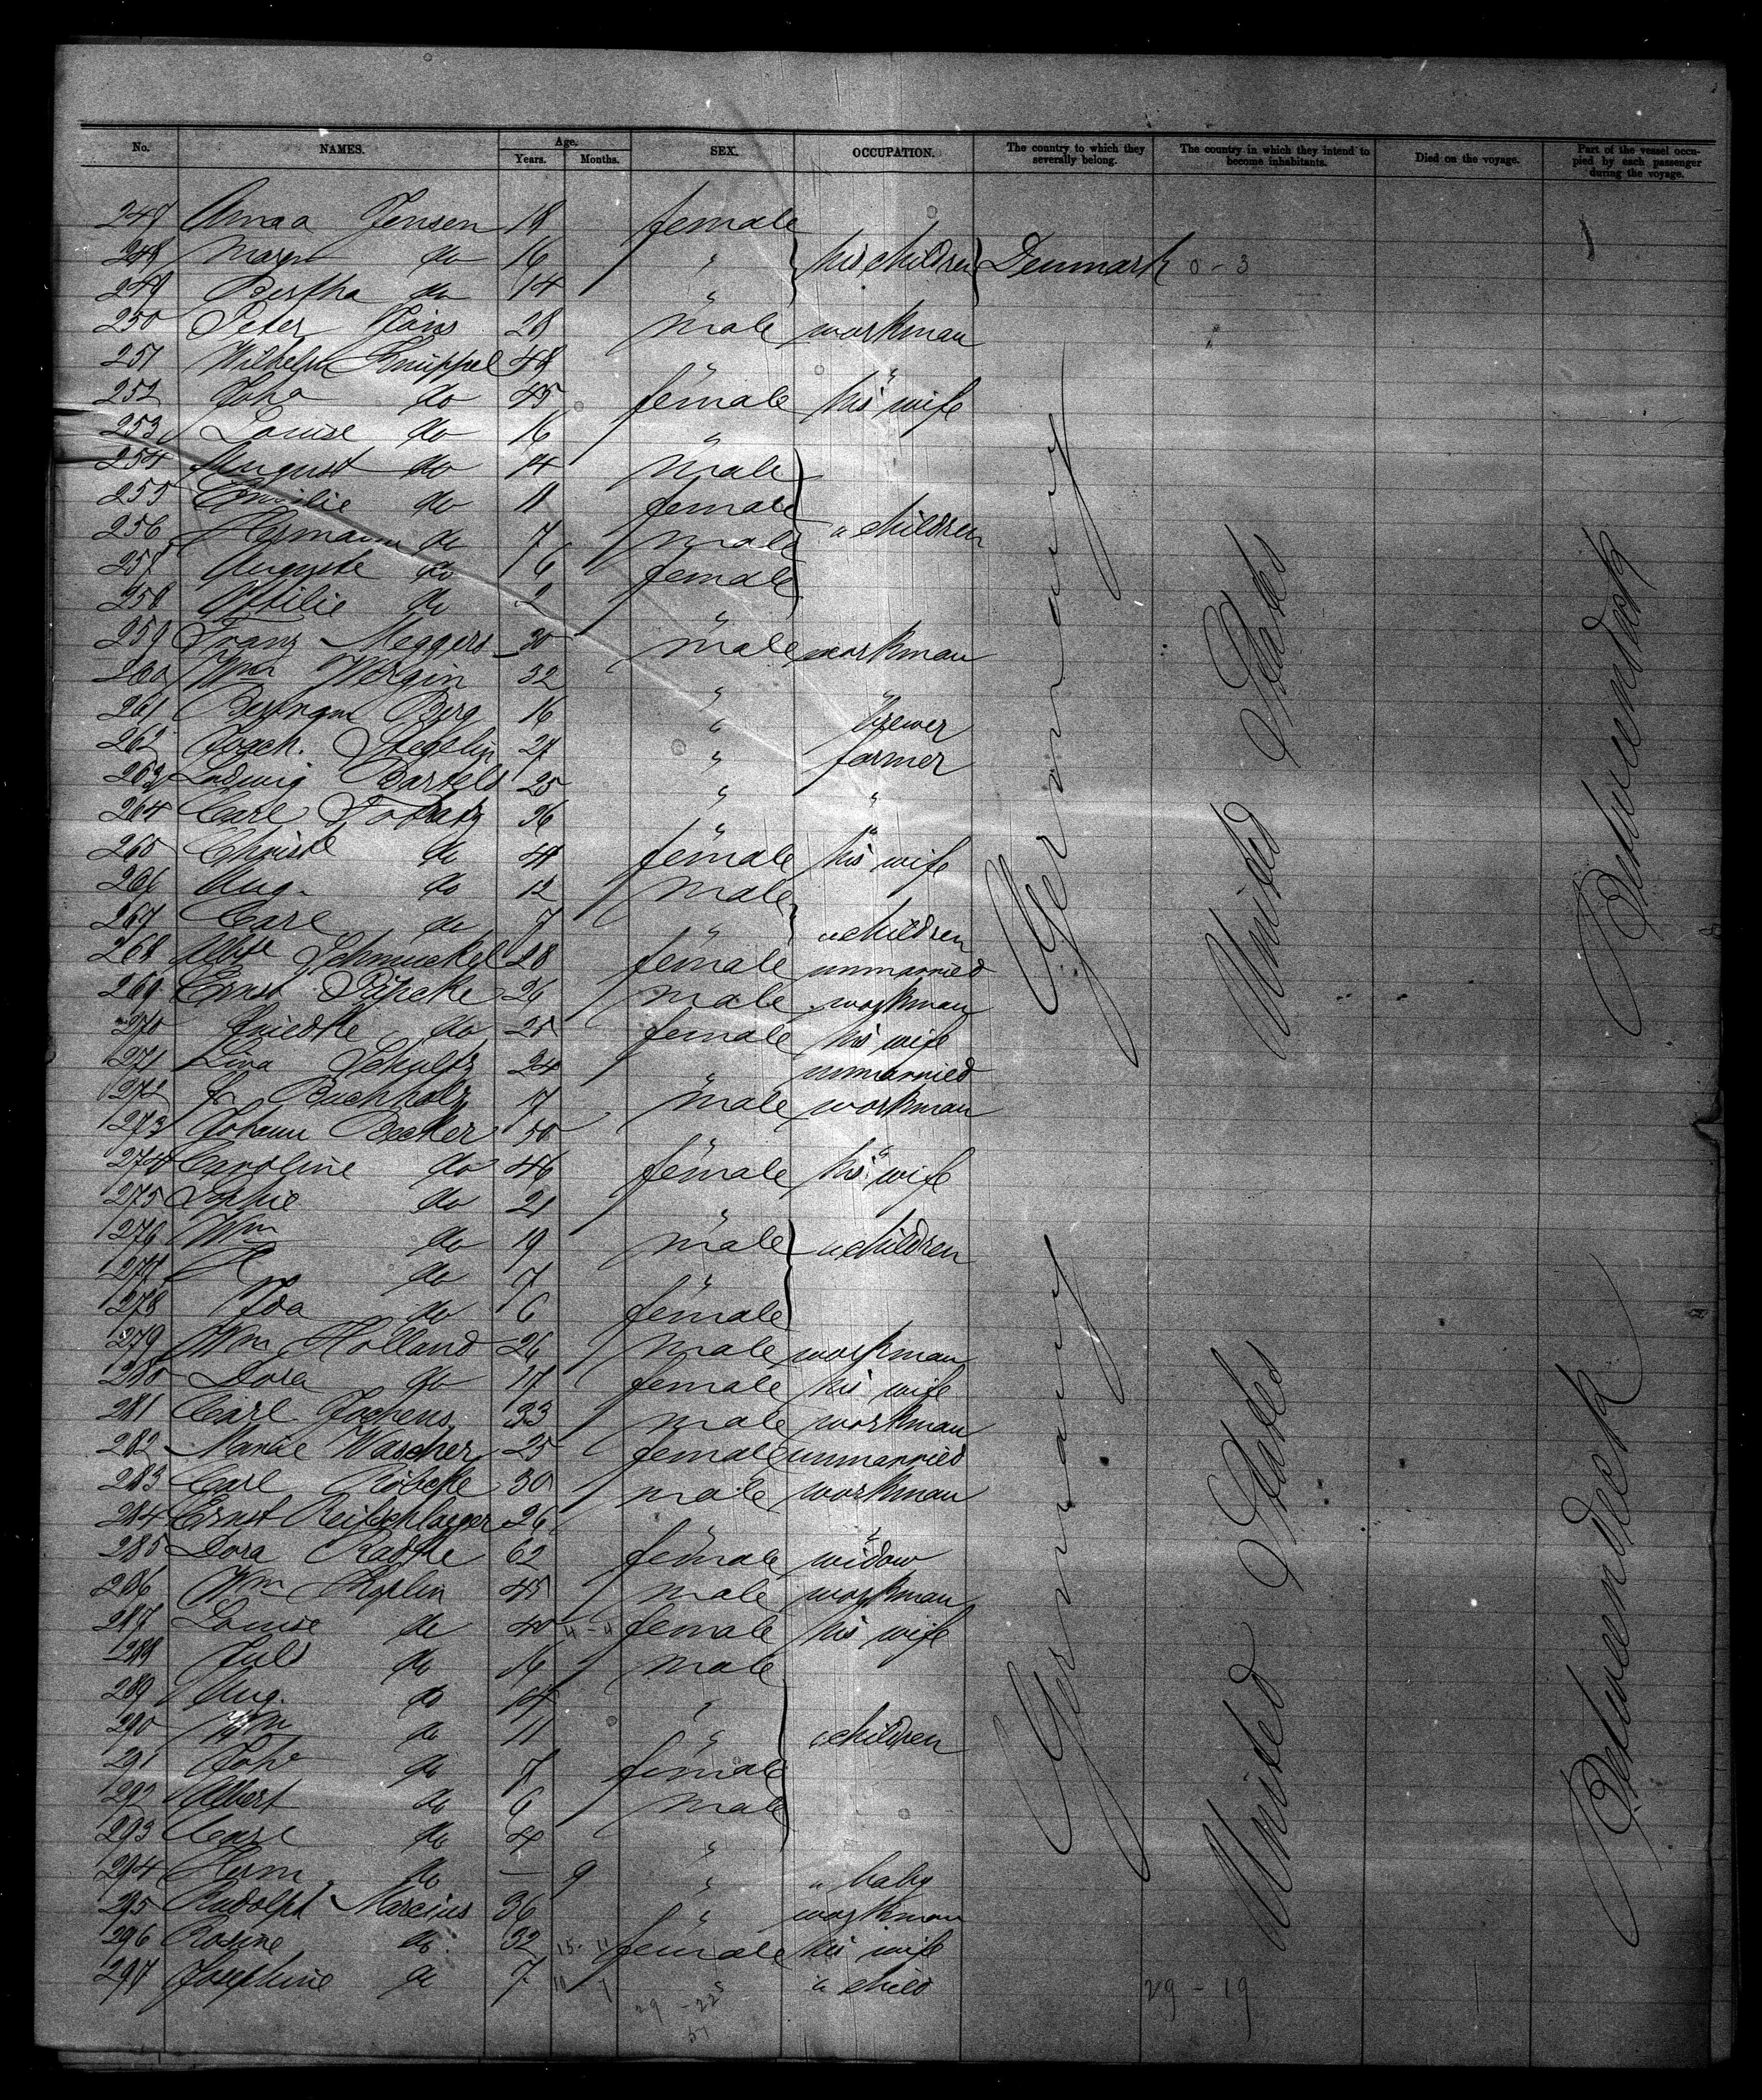 No. NAMES. Age. Years. Months. SEX. OCCUPATION. The country to which they severally belong. The country in which they intend to become inhabitants. Died on the voyage. Part of the vessel occupied by each passenger during the voyage.
247 Anna Jensen 18 female
248 Maren do 16 " his children Denmark 0-3
249 Bertha do 14 "
250 Peter 28 male workman
251 Wilhelm Knüppel 48 " "
252 Joha do 45 female his wife
253 Louise do 16 "
254 August do 14 male
255 Emilie do 11 female
256 Hermann do 7 male " children
257 Auguste do 6 female
258 Ottilie do 2 "
259 Franz Meggers 30 male workman
260 Wm 32 " "
261 Bertram Berg 16 " brewer
262 Joach. Stegelin 27 " farmer
263 Ludwig Bartels 25 " "
264 Carl 36 " "
265 Christe do 41 female his wife
266 Aug. do 12 male
267 Carl do 7 " " children
268 Schmuckel 28 female unmarried
269 Ernst Pipcke 26 male workman
270 Friedke do 25 female his wife
271 Lina Schultz 24 " unmarried
272 Fr Buchholz 17 male workman
273 Johann Becker 50 " "
274 Caroline do 46 female his wife
275 Sophie do 21 "
276 Wm do 19 male " children
277 do 7 "
278 Ida do 6 female
279 Wm Holland 26 male workman
280 Dora do 17 female his wife
281 Carl Jochens 33 male workman
282 Marie Wascher 25 female unmarried
283 Carl Röbcke 30 male workman
284 Ernst Reifschlaeger 26 " "
285 Dora Radtke 62 female widow
286 Wm 45 male workman
287 Louise do 40 4-4 female his wife
288 Juls do 16 male
289 Aug. do 14 "
290 Wm do 11 " " children
291 Joha do 7 female
292 Albert do 6 male
293 Carl do 4 "
294 Herm. do — 9 " " baby
295 Rudolph Marcius 36 " workman
296 Rosine do 32 15-11 female his wife
297 Josephine do 7 10 1 " " child
29 - 22
51
29 - 19
Germany
United States
Betweendeck
Germany
United States
Betweendeck